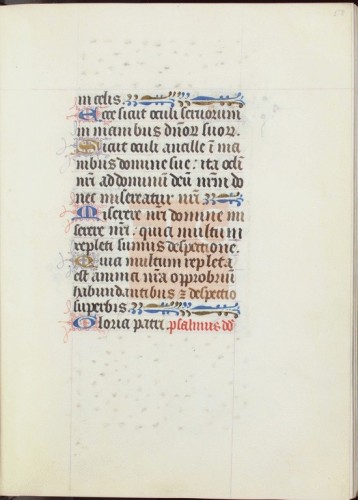 in celis.
Ecce sicut oculi seruorum
in manibus dn̄or̄ suor̄.
Sicut oculi ancille ī ma
nibus domine sue: ita ocl̄i
nr̄i ad dominū deū nr̄m do
nec misereatur nr̄i
Miserere nr̄i domine mi
serere nr̄i: quia multum
repleti sumus despectione.
Quia multum repleta
est anima nr̄a opprobriū
habundantibus ⁊ despectio
superbis.
Gloria patri. psalmus dd̄